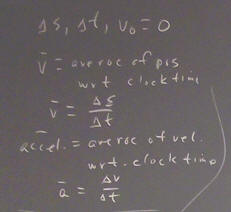 Δs, Δt, v₀ = 0
v̄ = ave roc of pos
wrt clock time
v̄ = Δs/Δt
accel. = ave roc of vel.
wrt. clock time
ā = Δv/Δt